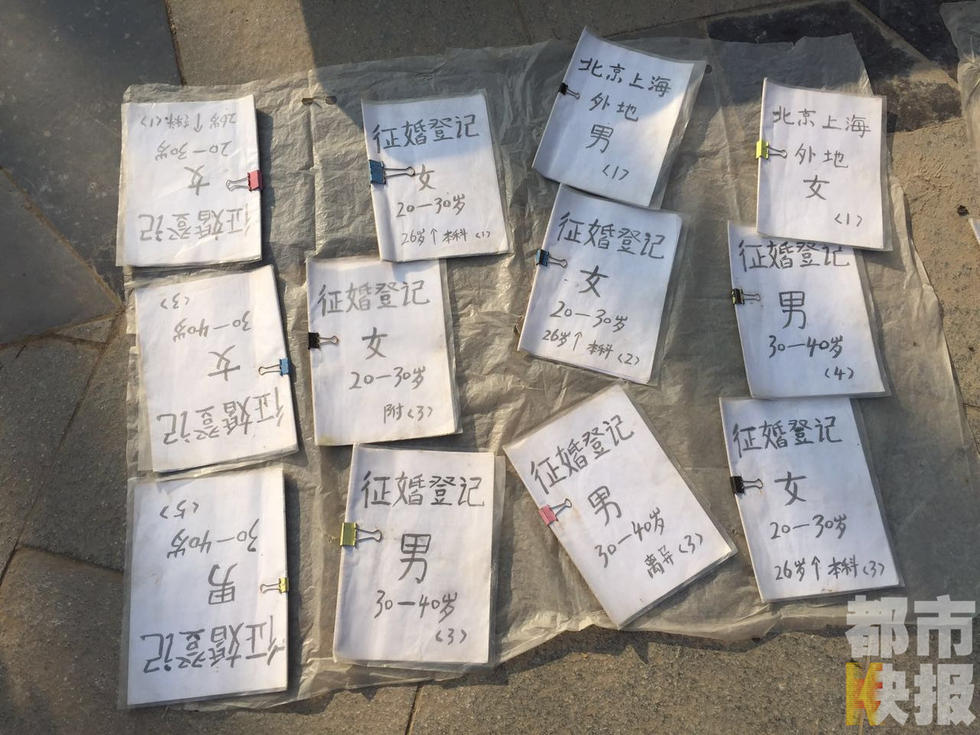 征婚登记
女
20—30岁
26岁↑本科(1)
征婚登记
女
20—30岁
26岁↑ 本科(1)
北京上海
外地
男
(1)
北京上海
外地
女
(1)
征婚登记
女
30—40岁
(3)
征婚登记
女
20—30岁
附(3)
征婚登记
女
20—30岁
26岁↑ 本科(2)
征婚登记
男
30—40岁
(4)
征婚登记
男
30—40岁
(5)
征婚登记
男
30—40岁
(3)
征婚登记
男
30—40岁
离异(3)
征婚登记
女
20—30岁
26岁↑本科(3)
都市
快报